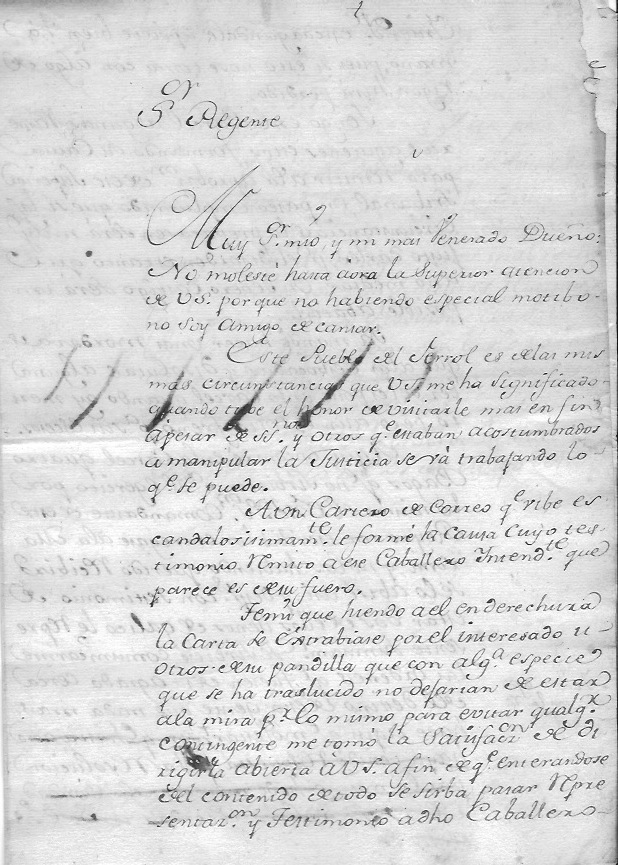 Sr. Regente
Muy Sr. mio, y mi mas Venerado Dueño:
No molesté hasta aora la Superior atencion
de VS. por que no habiendo especial motibo
no soy Amigo de cansar.
Este Pueblo del Ferrol es de las mis
mas circunstancias que VS. me ha significado
quando tube el honor de visitarle mas en fin
apesar de SS.nos y otros qe. estaban acostumbrados
a manipular la Justicia se vá trabajando lo
qe. se puede.
A un Cartero de Correo qe. vibe es
candalosisimamte. le formé la Causa Cuyo tes
timonio Remito a ese Caballero Intendte. que
parece es de su fuero.
Temí que hiendo a el en derechura
la Carta se Extrabiase por el interesado u
otros de su pandilla que con alga. especie
que se ha traslucido no dejarian de estar
ala mira pr. lo mismo para evitar qualqr.
contingente me tomo la Satisfacon. de di
rigirla abierta a VS. afin de qe. enterandose
del contenido de todo se sirba pasar Repre
sentazon. y Testimonio a dho Caballero